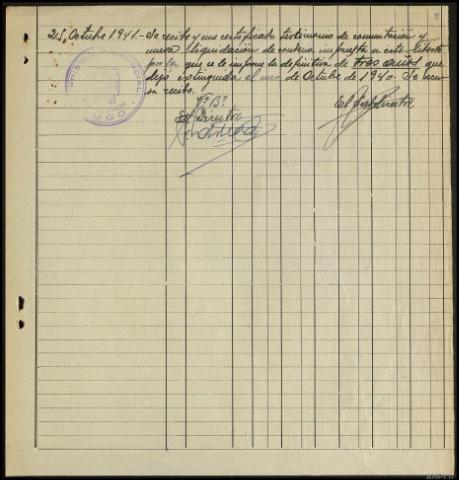 25, Octubre 1941.- Se recibe y une certificado testimonio de conmutación y
nueva liquidación de condena impuesta a este liberto
por la que se le impone la definitiva de tres años que
dejó extinguida el uno de Octubre de 1940. Se acusa
recibo.
Vº Bº
El Director
El
LUGO